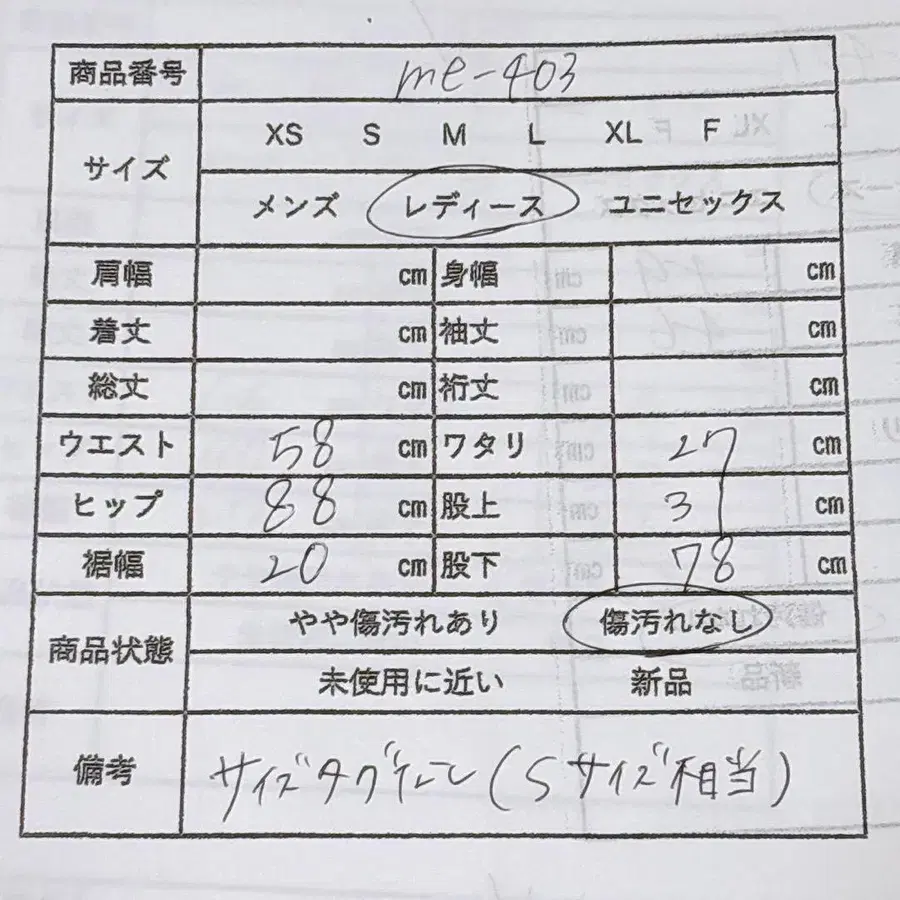 商品番号 me-403
サイズ XS S M L XL F
メンズ レディース ユニセックス
肩幅 cm 身幅 cm
着丈 cm 袖丈 cm
総丈 cm 裄丈 cm
ウエスト 58 cm ワタリ 27 cm
ヒップ 88 cm 股上 31 cm
裾幅 20 cm 股下 78 cm
商品状態 やや傷汚れあり 傷汚れなし
未使用に近い 新品
備考 サイズタグなし(Sサイズ相当)